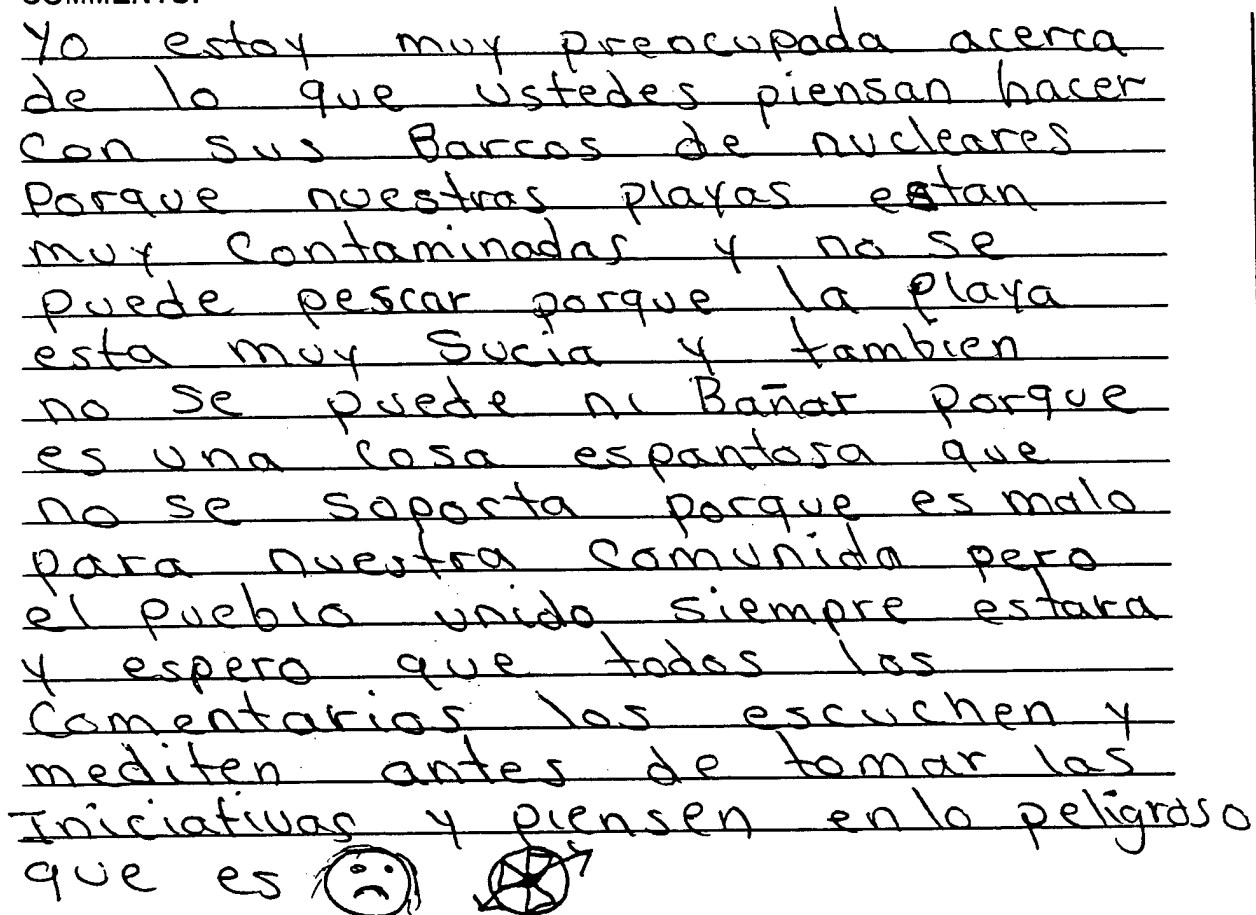 Yo estoy muy preocupada acerca
de lo que ustedes piensan hacer
con sus Barcos de nucleares
Porque nuestras playas estan
muy Contaminadas y no se
puede pescar porque la playa
esta muy Sucia y tambien
no se puede ni Bañar porque
es una cosa espantosa que
no se soporta porque es malo
para nuestra Comunida pero
el pueblo unido siempre estara
y espero que todos los
Comentarios los escuchen y
mediten antes de tomar las
Iniciativas y piensen en lo peligroso
que es